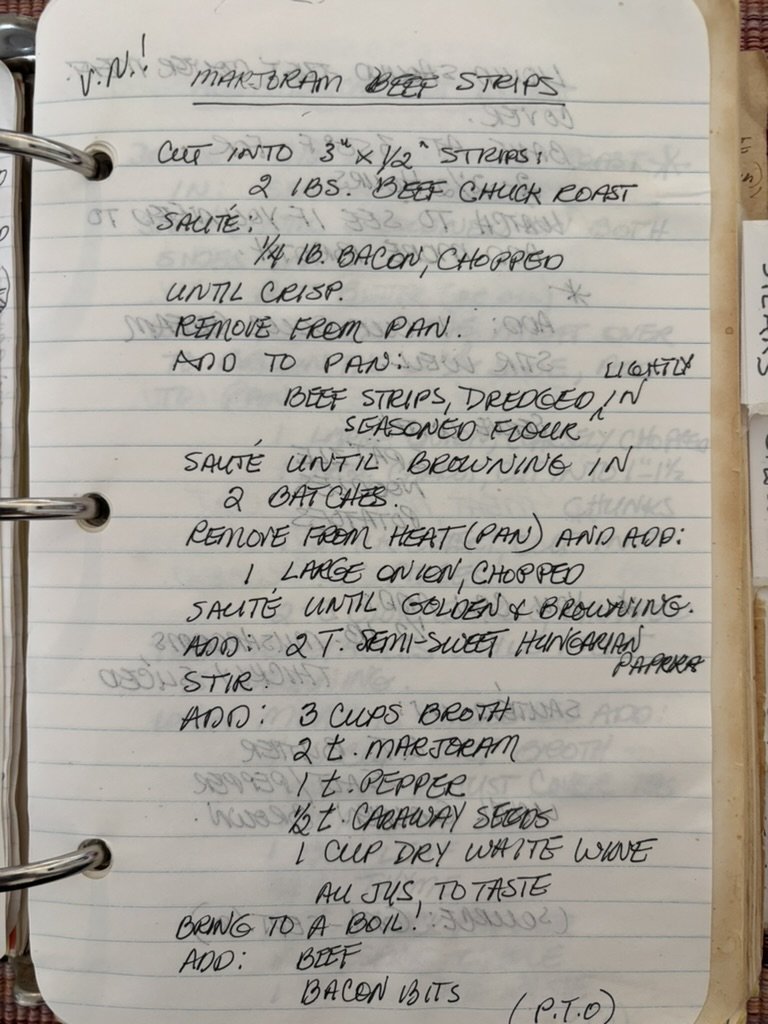 V.N.! MARJORAM BEEF STRIPS
CUT INTO 3" x 1/2" STRIPS:
2 LBS. BEEF CHUCK ROAST
SAUTÉ:
1/4 lB. BACON, CHOPPED
UNTIL CRISP.
REMOVE FROM PAN.
ADD TO PAN:
LIGHTLY
BEEF STRIPS, DREDGED ^ IN
SEASONED FLOUR
SAUTÉ UNTIL BROWNING IN
2 BATCHES.
REMOVE FROM HEAT (PAN) AND ADD:
1 LARGE ONION, CHOPPED
SAUTÉ UNTIL GOLDEN & BROWNING.
ADD: 2 T. SEMI-SWEET HUNGARIAN
PAPRIKA
STIR.
ADD: 3 CUPS BROTH
2 t. MARJORAM
1 t. PEPPER
1/2 t. CARAWAY SEEDS
1 CUP DRY WHITE WINE
AU JUS, TO TASTE
BRING TO A BOIL!
ADD: BEEF
BACON BITS
(P.T.O)